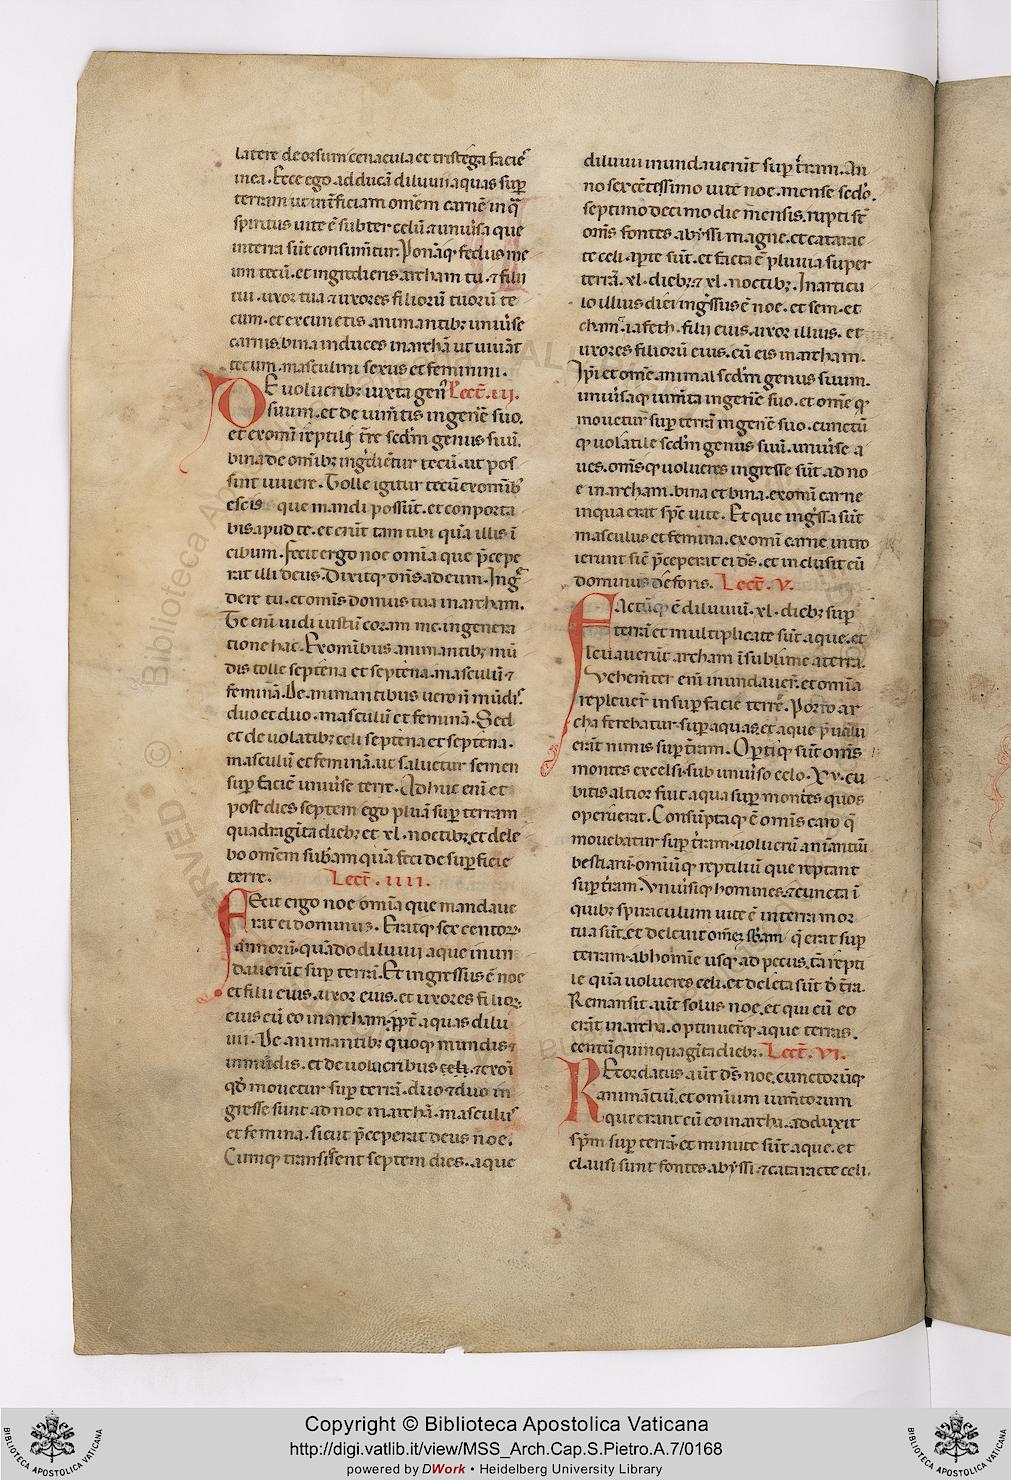 latere deorsum cenacula et tristega facies̄
in ea. Ecce ego adducā diluuii aquas sup̄
terram ut int̄ficiam omēm carnē in q̄
spiritus uite ē subter celū ⁊ uniu̓sa que
in terra sūt consum̄tur. Ponāq; fedus me
um tecū. et ingredieris archam tu. ⁊ filii
tui. uxor tua ⁊ uxores filiorū tuorū te
cum. et ex cunctis animantib; uniu̓se
carnis. bina induces in archā ut uiuāt
tecum. masculini sexus et feminini.
DE uolucrib; iuxta gen̄ Lect̄. iii.
suum. et de ium̄tis in gen̄e suo.
et ex om̄i reptili t̄re scd̄m genus suū.
bina de om̄ib; ing̓dient̄ur tecū. ut pos
sint uiuere. Tolle igitur tecū ex om̄ib;
escis que mandi possūt. et conporta
bis apud te. et erūt tam tibi quā illis ī
cibum. Fecit ergo noe om̄ia que p̄cepe
rat illi deus. Dixitq; dn̄s ad eum. Ing̓
dere tu. et om̄is domus tua in archam.
Te enī uidi iustū coram me. in genera
tione hac. Ex omībus animantib; mū
dis tolle septēna et septēna. masculū ⁊
feminā. De animantibus uero n̄ mūdis
duo et duo. masculū et feminā. Sed
et de uolatib; celi septēna et septēna.
masculū et feminā. ut saluetur semen
sup̄ faciē uniu̓se terre. Adhuc enī et
post dies septem ego pluā sup̄ terram
quadragīta dieb; et xl. noctib;. et dele
bo omēm sub̄am quā feci de sup̄ficie
terre. Lect̄. iiii.
FEcit ergo noe om̄ia que mandaue
rat ei dominus. Eratq; sexcentoꝝ
annorū. quādo diluuij aque inun
dauerūt sup̄ terrā. Et ingressus ē noe
et filii eius. uxor eius. et uxores filioꝝ
eius cū eo in archam. pp̄t̄ aquas dilu
uii. De animantib; quoq; mundis ⁊
inmūdis. et de uolucribus celi. ⁊ ex om̄i
qd̄ mouetur sup̄ terrā. duo ⁊ duo in
gresse sunt ad noe in archā. masculus
et femina. sicut p̄ceperat deus noe.
Cumq; transissent septem dies. aque
diluuii inundauerūt sup̄ t̄ram. An
no sexcētessimo uite noe. mense scd̄o.
septimodecimo die mensis. rupti st̄
om̄s fontes abyssi magne. et catarac
te celi apte sūt. et facta ē pluuia super
terrā. xl. dieb; ⁊ xl. noctib;. In articu
lo illius diei ing̓ssus ē noe. et sem. et
cham. iafeth. filii eius. uxor illius. et
uxores filiorū eius. cū eis in archam.
Ip̄i et om̄e animal scd̄m genus suum.
uniu̓saq; ium̄ta in gen̄e suo. et om̄e q̄
mouetur sup̄ terrā in gen̄e suo. cunctū
q; uolatile scd̄m genus suū. uniu̓se a
ues. om̄sq; uolucres ingresse sūt ad no
e in archam. bina et bina. ex om̄i carne
in qua erat sp̄c uite. Et que ing̓ssa sūt
masculus et femina. ex om̄i carne intro
ierunt sic̄ p̄ceperat ei ds̄. et inclusit eū
dominus deforis. Lect̄. V.
FActūq; ē diluuiū. xl. dieb; sup̄
terrā. et multiplicate sūt aque. et
leuauerūt archam ī sublime a terra.
Vehem̄ter enī inundauer̄. et om̄ia
repleuer̄ in sup̄facie terre. Porro ar
cha ferebatur sup̄ aquas. et aque p̄ualu
erūt nimis sup̄ t̄ram. Op̄tiq; sūt om̄s
montes excelsi sub uniu̓so celo. Xv. cu
bitis altior fuit aqua sup̄ montes quos
operuerat. Consūptaq; ē om̄is caro q̄
mouebatur sup̄ t̄ram. uolucrū anīantiū
bestiarū. omiūq; reptiliū que reptant
sup̄ t̄ram. Vniu̓siq; homines. ⁊ cuncta ī
quib; spiraculum uite ē in terra mor
tua sūt. et deleuit om̄ez sb̄am q̄ erat sup̄
terram. ab homīe usq; ad pecus. tā repti
le quā uolucres celi. et deleta sūt d̄ t̄ra.
Remansit aūt solus noe. et qui cū eo
erāt in archa. optinuer̄tq; aque terras.
centū quinquagīta dieb;. Lect̄. VI.
REcordatus aūt ds̄ noe. cunctorūq;
animātiū. et omium ium̄torum
que erant cū eo in archa. adduxit
sp̄m sup̄ terrā. et minute sūt aque. et
clausi sunt fontes abyssi. ⁊ cataracte celi.
BIBLIOTECA APOSTOLICA VATICANA
Copyright © Biblioteca Apostolica Vaticana
http://digi.vatlib.it/view/MSS_Arch.Cap.S.Pietro.A.7/0168
powered by DWork • Heidelberg University Library
BIBLIOTECA APOSTOLICA VATICANA